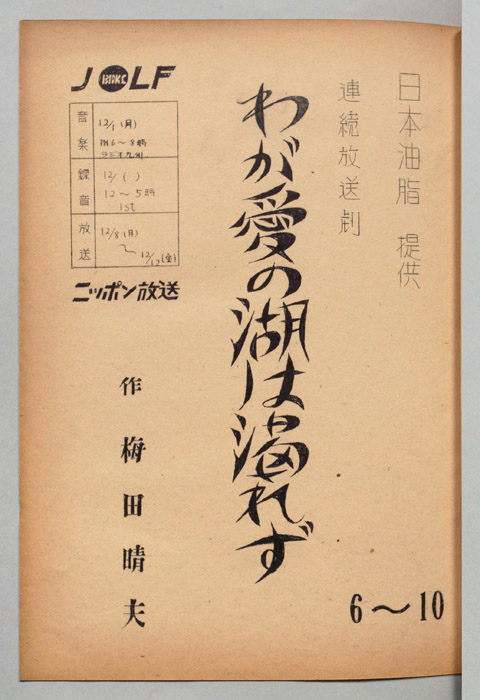 日本油脂 提供
連続放送劇
わが愛の湖は涸れず
6〜10
JOLF
音楽
12/1 (月)
6〜8時
ラジオ九州
録音
12/ ( )
12〜5時
1st
放送
12/8 (月)
〜
12/12 (金)
ニッポン放送
作 梅田晴夫